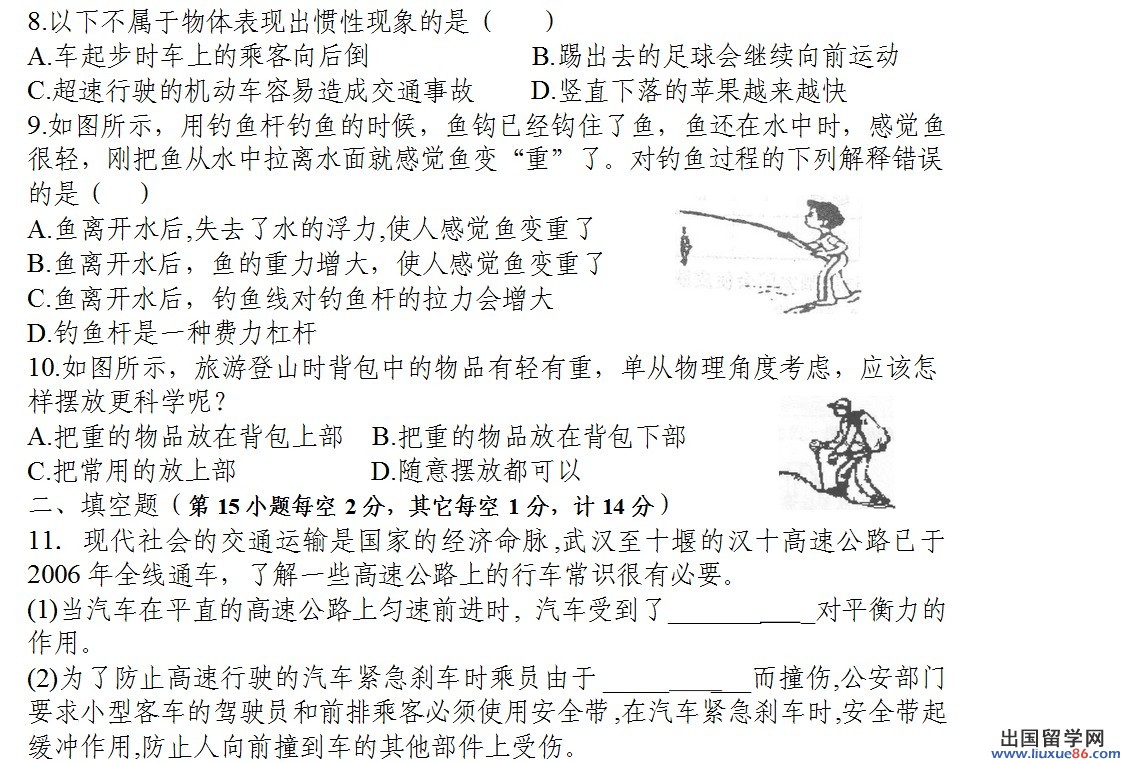 8.以下不属于物体表现出惯性现象的是（　　）
A.车起步时车上的乘客向后倒　　B.踢出去的足球会继续向前运动
C.超速行驶的机动车容易造成交通事故　　D.竖直下落的苹果越来越快
9.如图所示，用钓鱼杆钓鱼的时候，鱼钩已经钩住了鱼，鱼还在水中时，感觉鱼
很轻，刚把鱼从水中拉离水面就感觉鱼变“重”了。对钓鱼过程的下列解释错误
的是（　　）
A.鱼离开水后,失去了水的浮力,使人感觉鱼变重了
B.鱼离开水后，鱼的重力增大，使人感觉鱼变重了
C.鱼离开水后，钓鱼线对钓鱼杆的拉力会增大
D.钓鱼杆是一种费力杠杆
10.如图所示，旅游登山时背包中的物品有轻有重，单从物理角度考虑，应该怎
样摆放更科学呢？
A.把重的物品放在背包上部　B.把重的物品放在背包下部
C.把常用的放上部　　D.随意摆放都可以
二、填空题（第 15 小题每空 2 分，其它每空 1 分，计 14 分）
11.　现代社会的交通运输是国家的经济命脉,武汉至十堰的汉十高速公路已于
2006 年全线通车，了解一些高速公路上的行车常识很有必要。
(1)当汽车在平直的高速公路上匀速前进时, 汽车受到了___________对平衡力的
作用。
(2)为了防止高速行驶的汽车紧急刹车时乘员由于 ___________而撞伤,公安部门
要求小型客车的驾驶员和前排乘客必须使用安全带,在汽车紧急刹车时,安全带起
缓冲作用,防止人向前撞到车的其他部件上受伤。
出国留学网
www.liuxue86.com